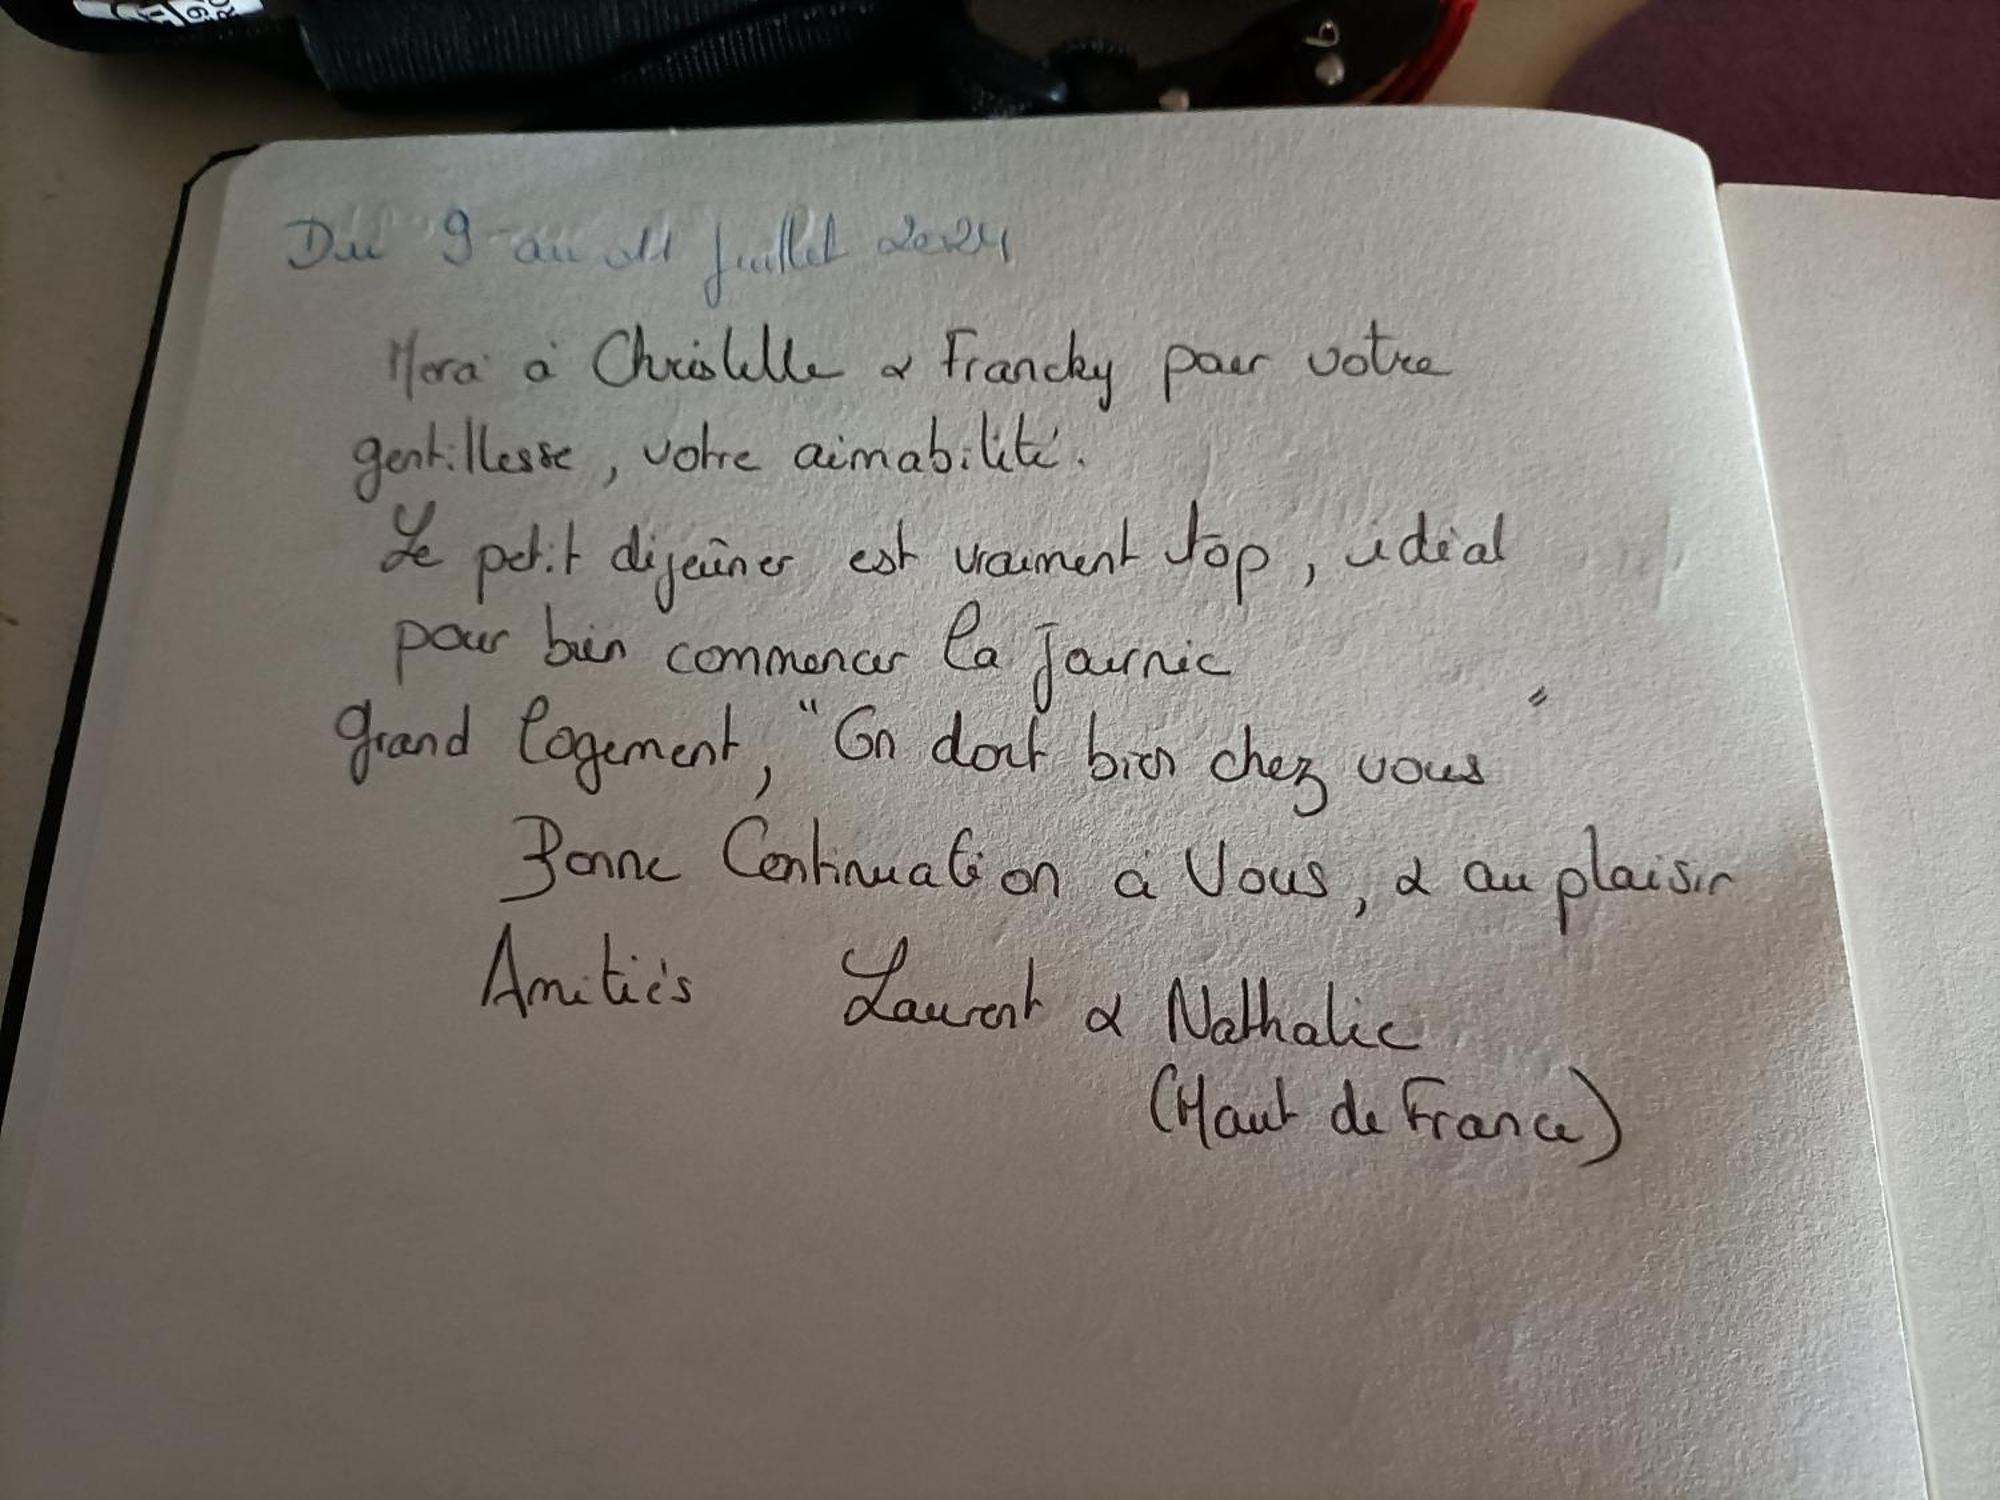 Du 9 au 11 Juillet 2024
Merci à Christelle & Francky pour votre
gentillesse, votre aimabilité.
Le petit déjeûner est vraiment top, idéal
pour bien commencer la journée
grand logement, "On dort bien chez vous"
Bonne Continuation à Vous, & au plaisir
Amitiés Laurent & Nathalie
(Haut de France)